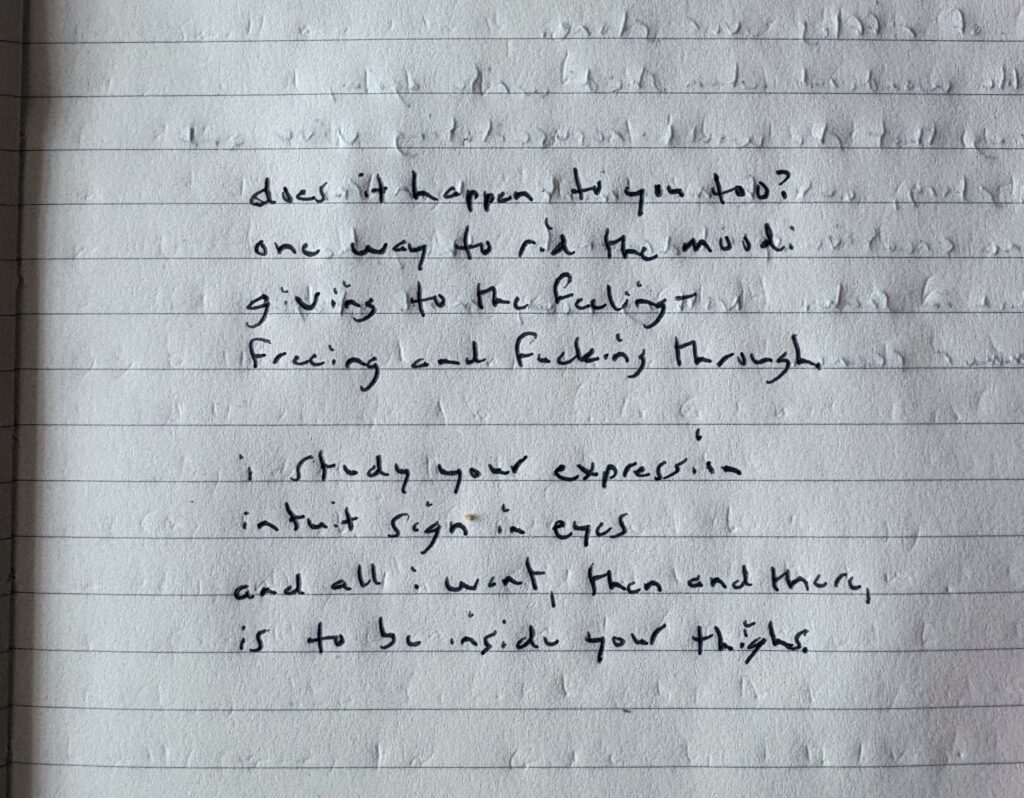 does it happen to you too?
one way to rid the mood:
giving to the feeling–
freeing and fucking through.
i study your expression
intuit sign in eyes
and all i want, then and there,
is to be inside your thighs.